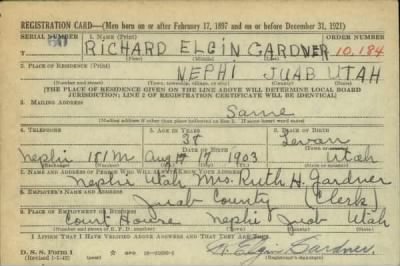 REGISTRATION CARD—(Men born on or after February 17, 1897 and on or before December 31, 1921)
SERIAL NUMBER 1. NAME (Print) ORDER NUMBER
RICHARD ELGIN GARDNER 10,184
(First) (Middle) (Last)
2. PLACE OF RESIDENCE (Print)
NEPHI JUAB UTAH
(Number and street) (Town, township, village, or city) (County) (State)
[THE PLACE OF RESIDENCE GIVEN ON THE LINE ABOVE WILL DETERMINE LOCAL BOARD
JURISDICTION; LINE 2 OF REGISTRATION CERTIFICATE WILL BE IDENTICAL]
3. MAILING ADDRESS
Same
[Mailing address if other than place indicated on line 2. If same insert word same]
4. TELEPHONE 5. AGE IN YEARS 6. PLACE OF BIRTH
38 Levan
DATE OF BIRTH
Nephi 181M Aug 17 1903 Utah
7. NAME AND ADDRESS OF PERSON WHO WILL ALWAYS KNOW YOUR ADDRESS
Nephi Utah Mrs. Ruth H. Gardner
8. EMPLOYER'S NAME AND ADDRESS
Juab County (Clerk)
9. PLACE OF EMPLOYMENT OR BUSINESS
Court House Nephi Juab Utah
(Number and street or R. F. D. number) (Town) (County) (State)
I AFFIRM THAT I HAVE VERIFIED ABOVE ANSWERS AND THAT THEY ARE TRUE.
D. S. S. Form 1
R. Elgin Gardner